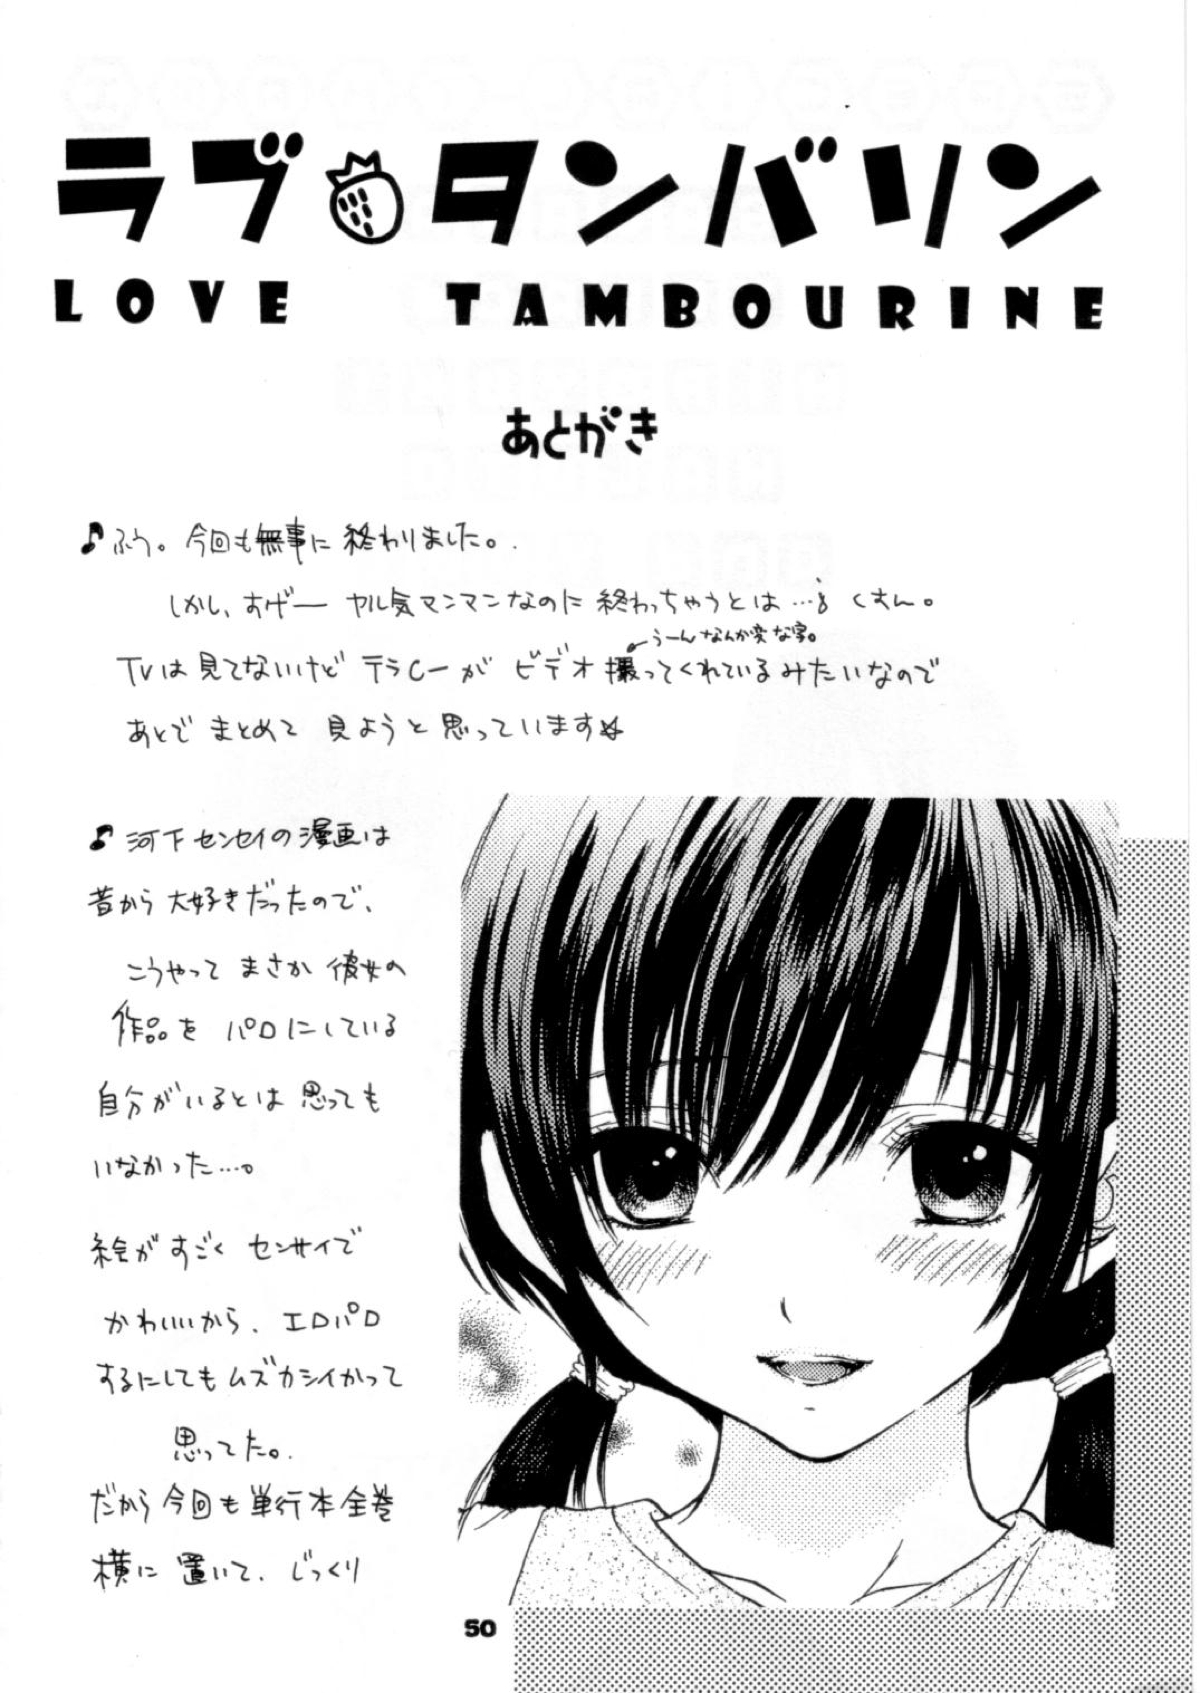 ラブ タンバリン
LOVE TAMBOURINE
あとがき
♪ふう。今回も無事に終わりました。
しかし、すげー ヤル気マンマンなのに 終わっちゃうとは…。くすん。
うーん なんか変な字。
TVは見てないけど テラCーが ビデオ 撮ってくれているみたいなので
あとで まとめて 見ようと 思っています☆
♪河下センセイの漫画は
昔から 大好きだったので、
こうやって まさか 彼女の
作品を パロにしている
自分がいるとは 思っても
いなかった…。
絵が すごく センサイで
かわいいから、エロパロ
するにしても ムズカシイかって
思ってた。
だから 今回も 単行本全巻
横に 置いて、じっくり
50